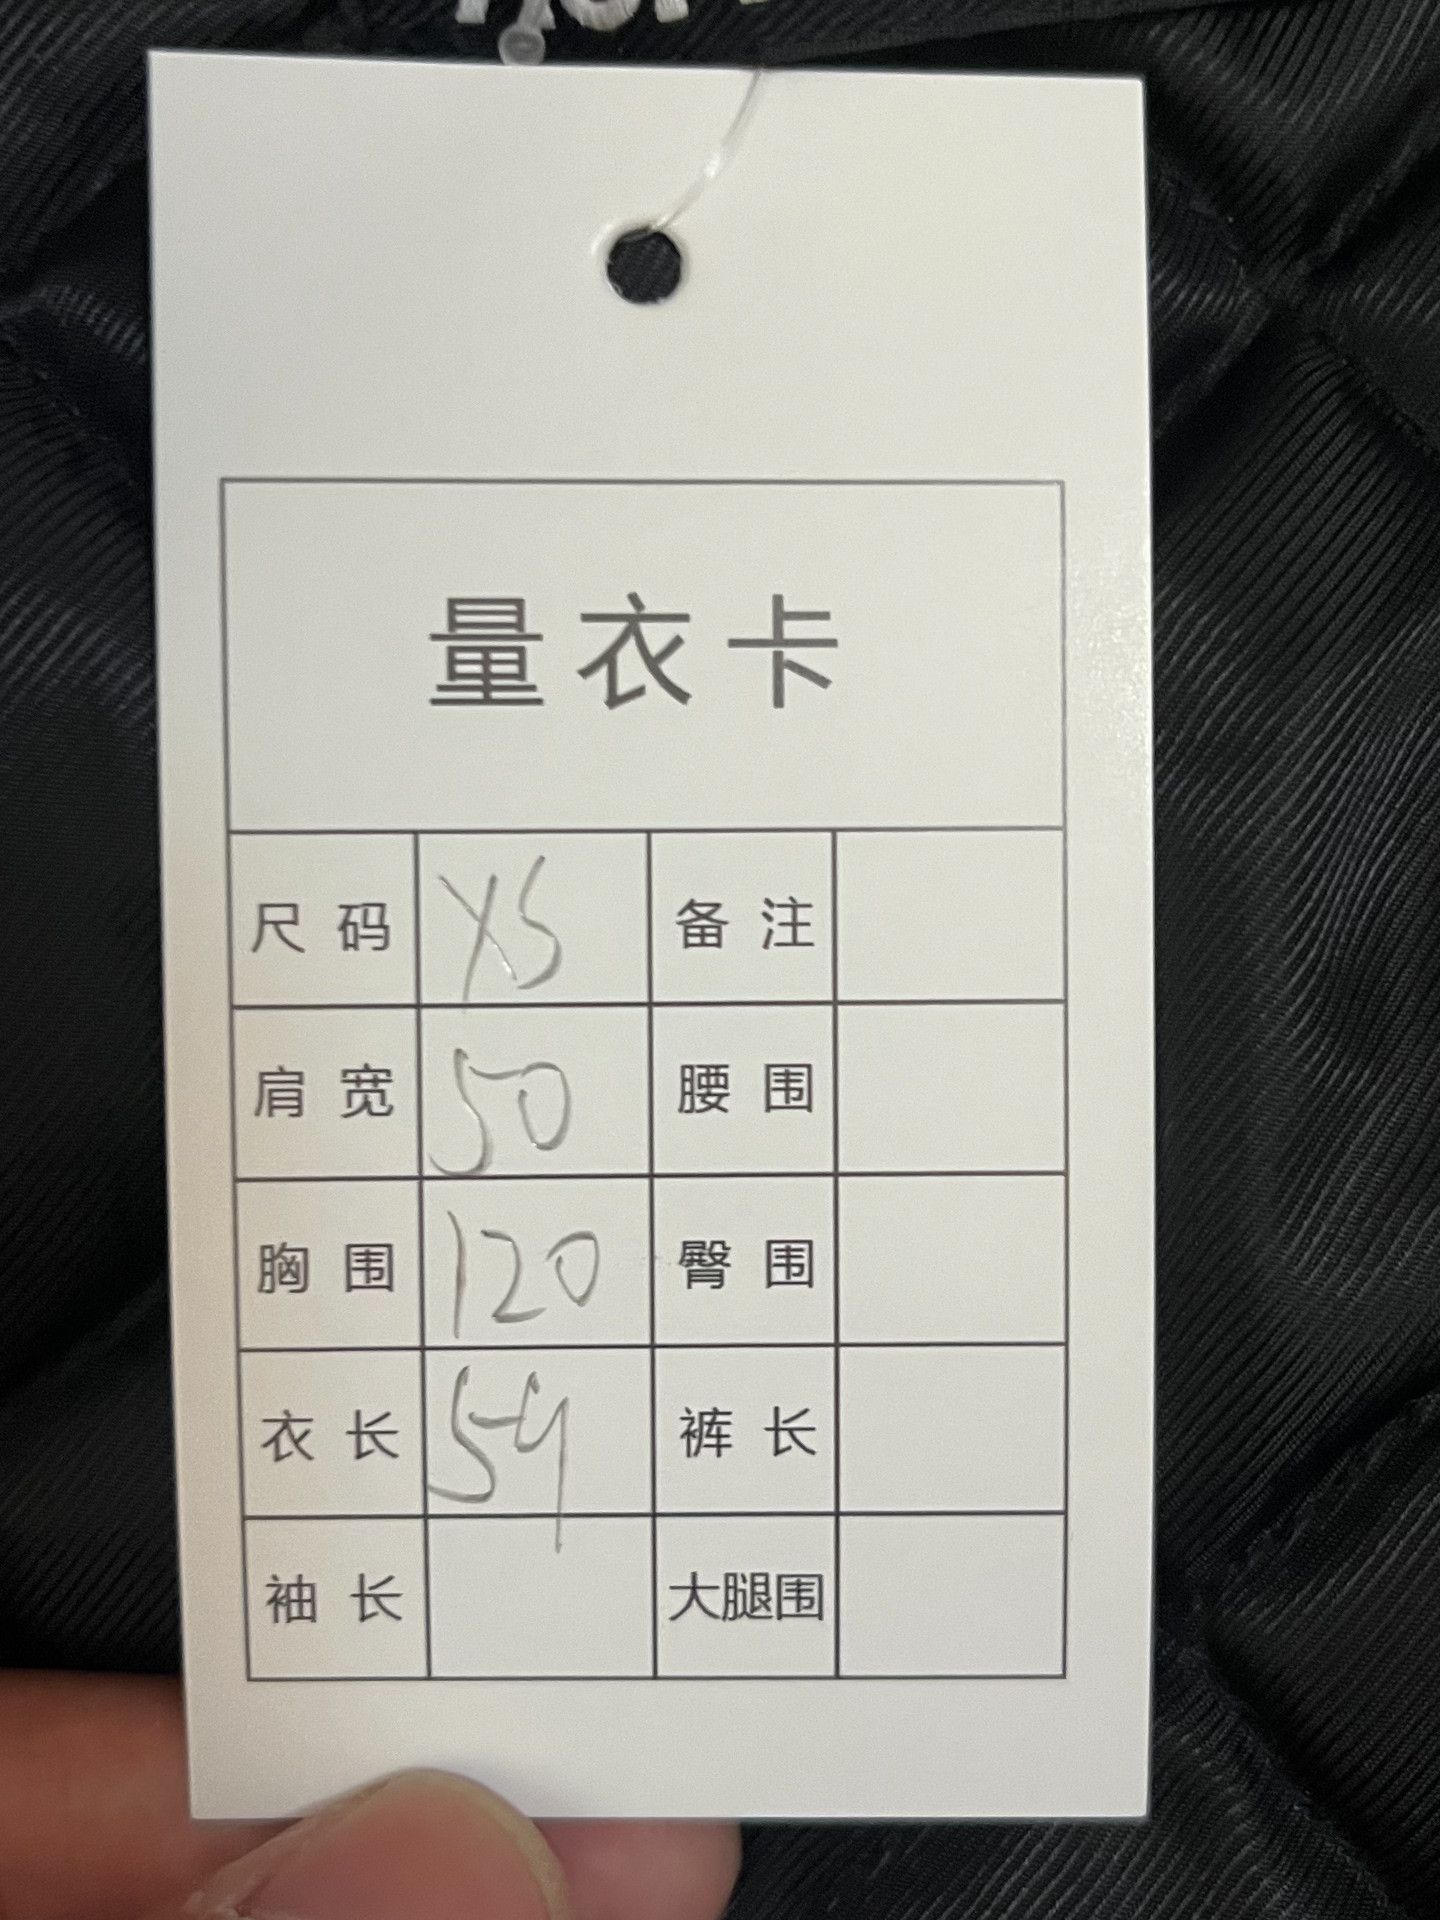 量衣卡
尺码 XS 备注
肩宽 50 腰围
胸围 120 臀围
衣长 59 裤长
袖长 大腿围